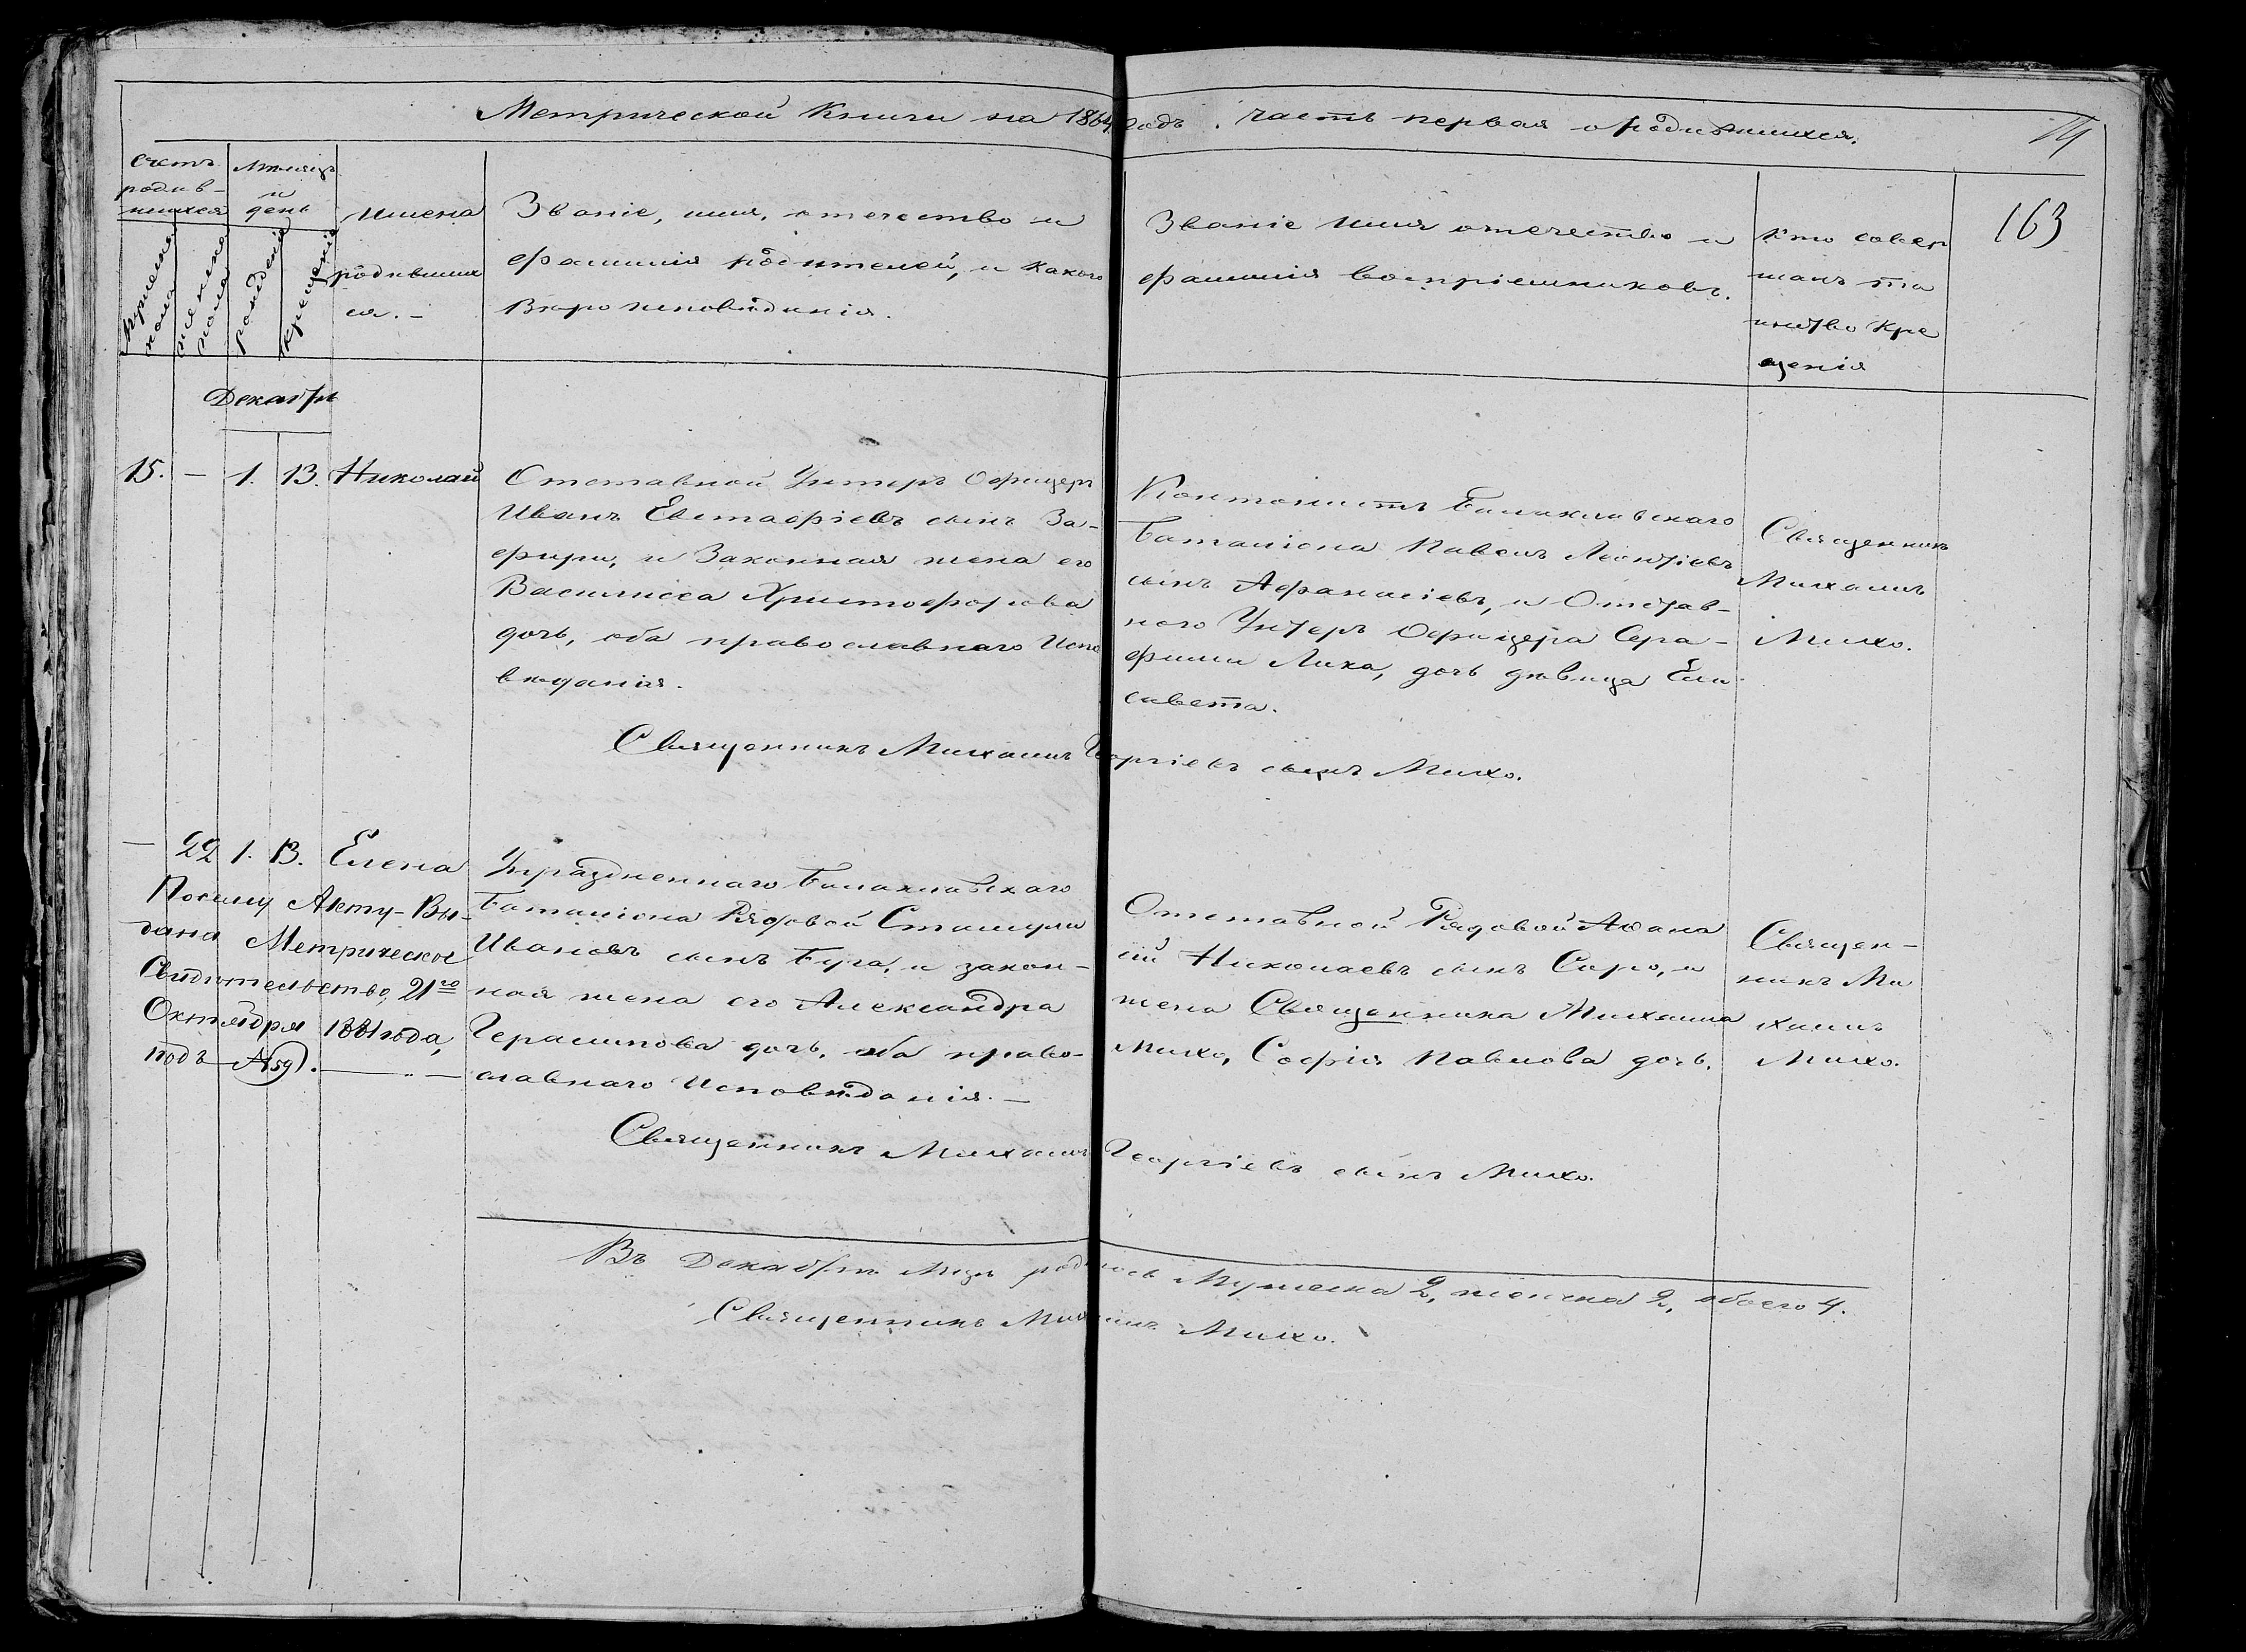 Метрической Книги на 1864 годъ. часть первая о родившихся.
14
163
Счетъ родив-
шихся
Мѣсяцъ
и
день
Мужеска
пола
женска
пола
рожденія
крещенія
Имена
родивших
ся. –
Званіе, имя, отечество и
фамилія родителей, и какого
Вѣроисповѣданія.
Званіе имя отечество и
фамилія воспріемниковъ.
Кто совер
шалъ та
инство кре
щенія
Декабрь
15. – 1. 13. Николай
Отставной Унтеръ Офицеръ
Иванъ Евстафіевъ сынъ За-
фири, и Законная жена его
Василисса Христофорова
дочь, оба православнаго Испо
вѣданія.
Кантонистъ Балаклавскаго
Баталіона Павелъ Леонтіевъ
сынъ Афанасіевъ, и Отстав-
ного Унтеръ Офицера Сера-
фима Лика, дочь дѣвица Ели
савета.
Священникъ
Михаилъ
Михо.
Священникъ Михаилъ Георгіевъ сынъ Михо.
– 22 1. 13. Елена
По сему Акту - Вы-
дана Метрическое
Свидѣтельство, 21го
Октября 1881 года,
подъ №59).
Упраздненнаго Балаклавскаго
Баталіона Рядовой Стамули
Ивановъ сынъ Буга, и закон-
ная жена его Александра
Герасимова дочь, оба право-
славнаго Исповѣданія. –
Отставной Рядовой Аѳана
сій Николаевъ сынъ Саро, и
жена Священника Михаила
Михо, Софія Павлова дочь.
Священ-
никъ Ми
хаилъ
Михо.
Священникъ Михаилъ Георгіевъ сынъ Михо.
Въ Декабрѣ Мцѣ родилось Мужеска 2, женска 2, обоего 4.
Священникъ Михаилъ Михо.